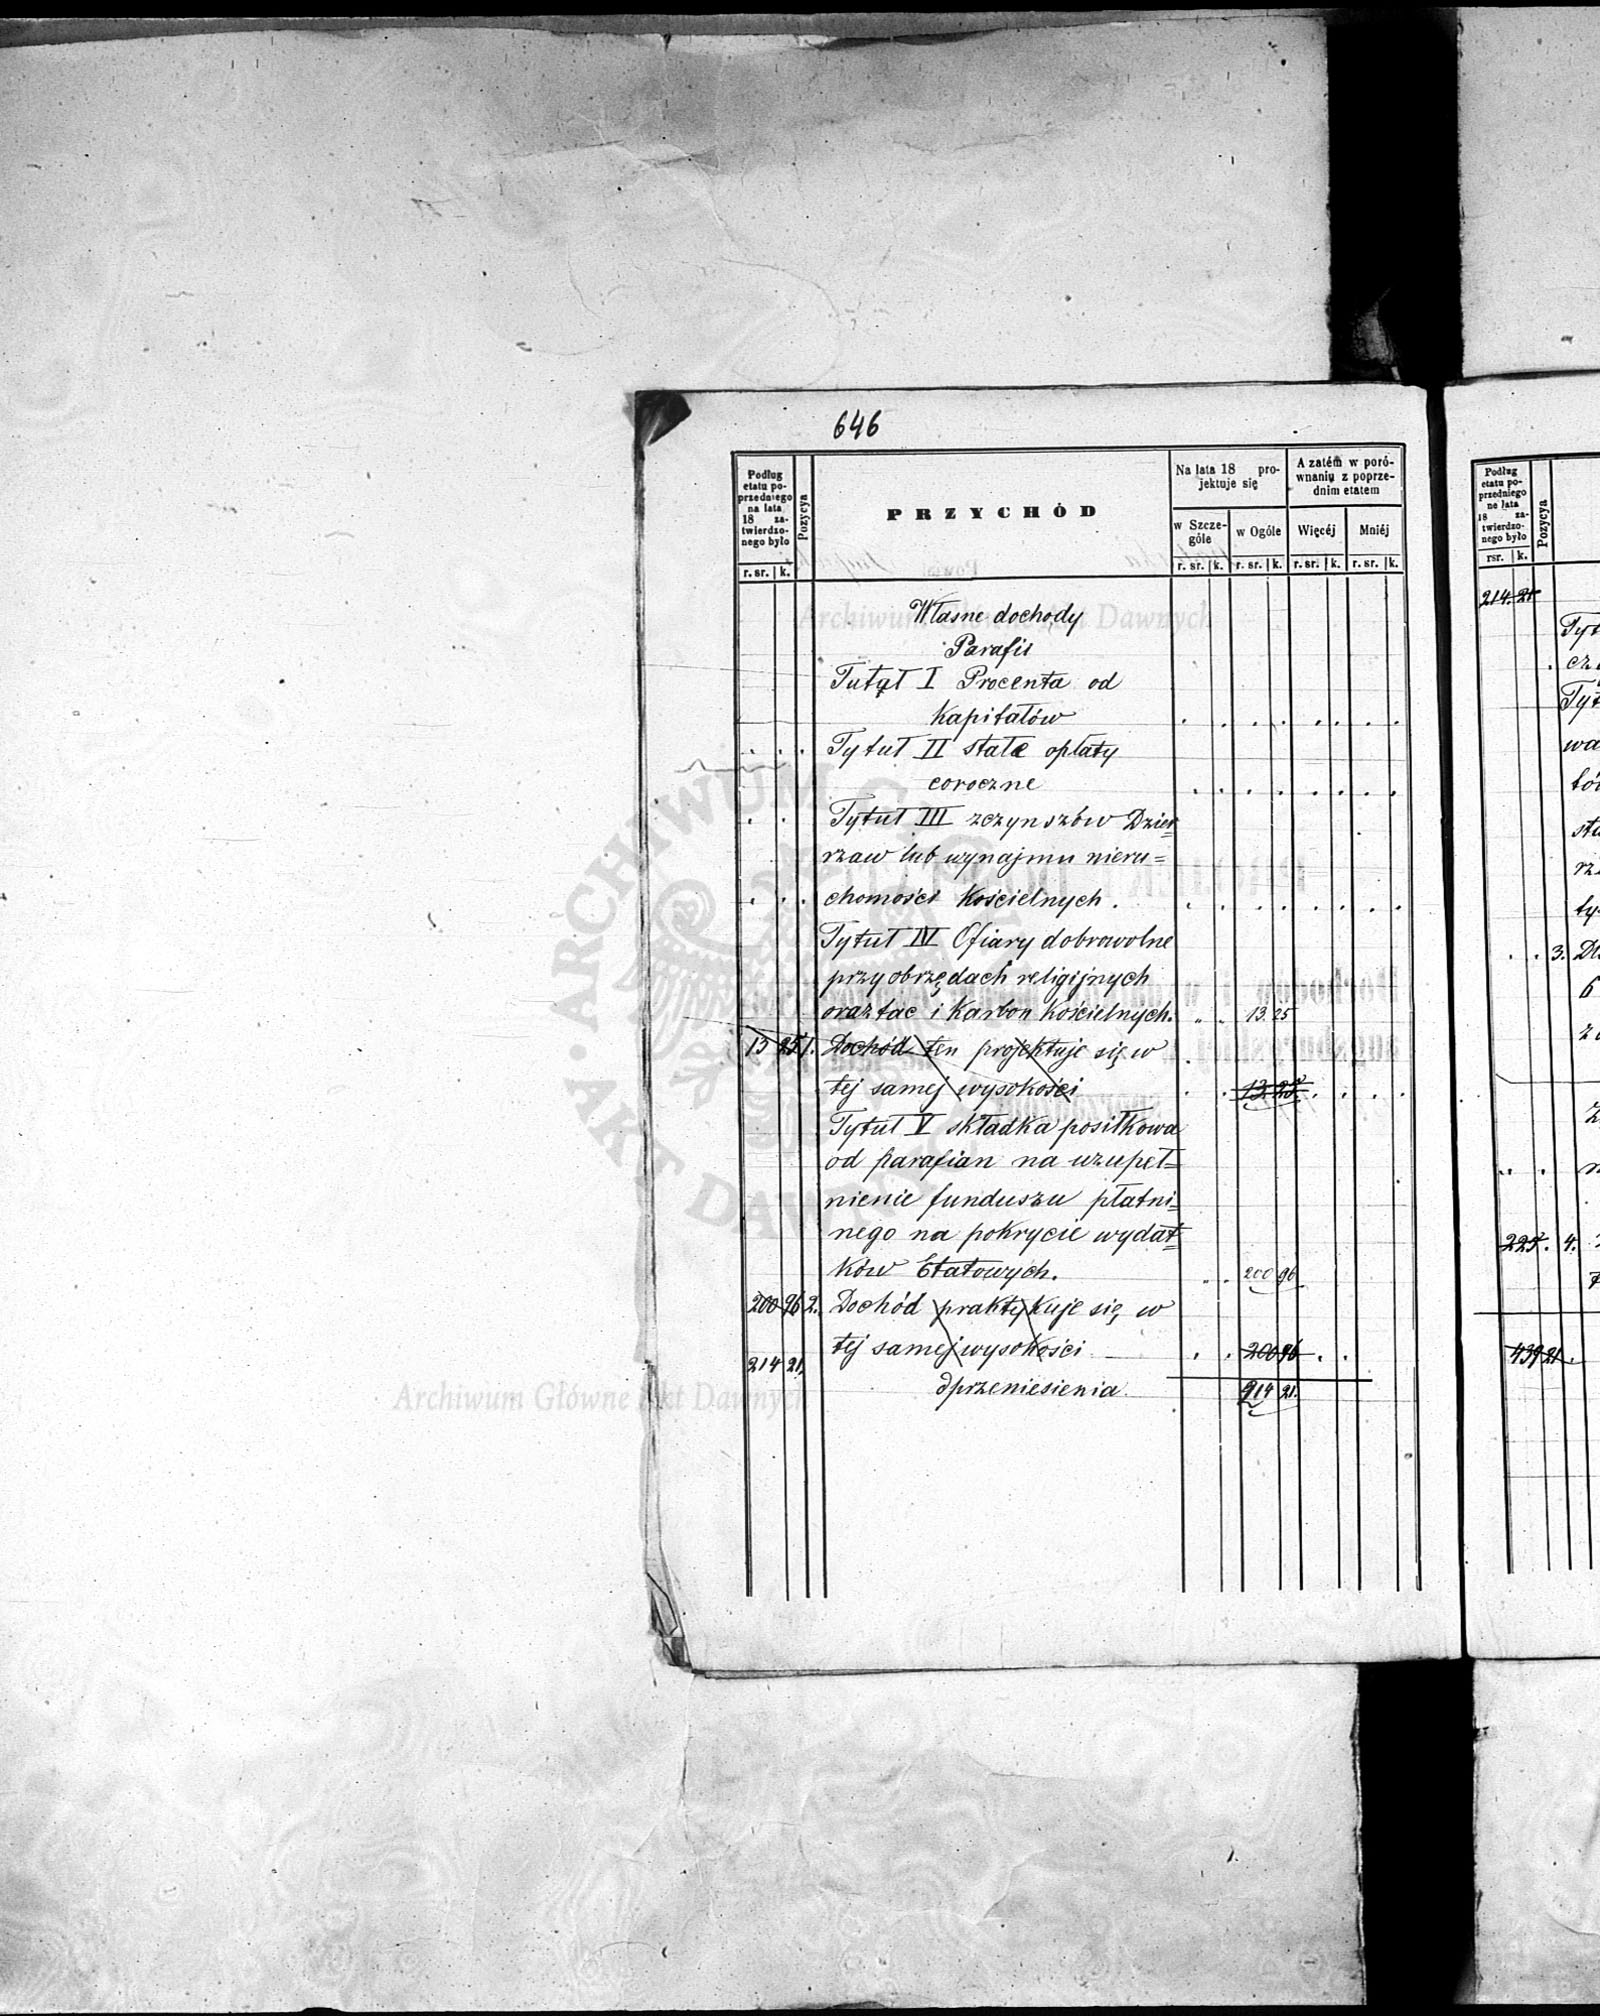 646
Podług etatu poprzedniego na lata 18 zatwierdzonego było
Pozycya
PRZYCHÓD
Na lata 18 projektuje się
A zatém w porównaniu z poprzednim etatem
w Szczególe
w Ogóle
Więcéj
Mniéj
r. sr. k.
r. sr. k. r. sr. k. r. sr. k. r. sr. k.
Własne dochody
Parafii
Tutął I Procenta od
Kapitałów
Tytuł II stałe opłaty
coroczne
Tytuł III zczynszów Dzier=
rzaw lub wynajmu nieru=
chomości Kościelnych.
Tytuł IV Ofiary dobrowolne
przy obrzędach religijnych
oraz tac i Karbon Kościelnych. 13. 25
13 25 1. Dochód ten projektuje się w
tej samej wysokości 13. 25.
Tytuł V składka posiłkowa
od parafian na uzupeł=
nienie funduszu płatni=
nego na pokrycie wydat=
ków Etatowych. 200 96
200 96 2. Dochód praktykuje się w
tej samej wysokości 200 96
214 21. dprzeniesienia 214 21.
Podług etatu poprzedniego ne lata 18 zatwierdzonego było
Pozycya
rsr. k.
214. 21
Tyt
cz
Tyt
wa
sta
rz
ty
3.
6
225. 4.
439 21.
Archiwum Główne Akt Dawnych
ARCHIWUM GŁÓWNE AKT DAWNYCH
Archiwum Główne Akt Dawnych